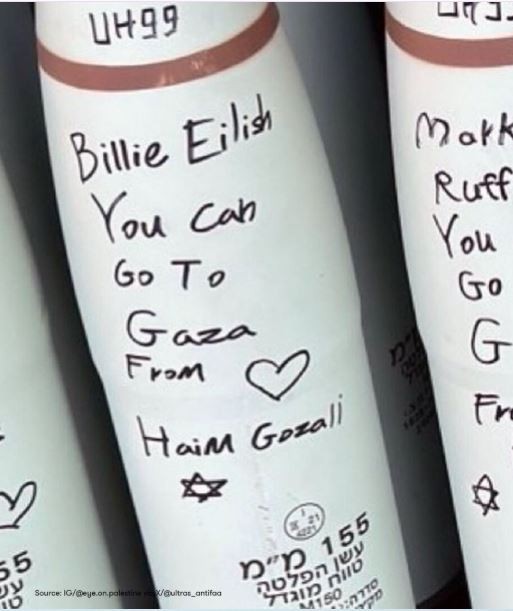 UH99
Billie Eilish
You Can
Go To
Gaza
From ♡
Haim Gozali
✡
155 מ"מ
עשן הפלטה
טווח מוגדל
M150
Mark
Ruff
You
Go
G
Fr
155
Source: IG/@eye.on.palestine via X/@ultras_antifaa